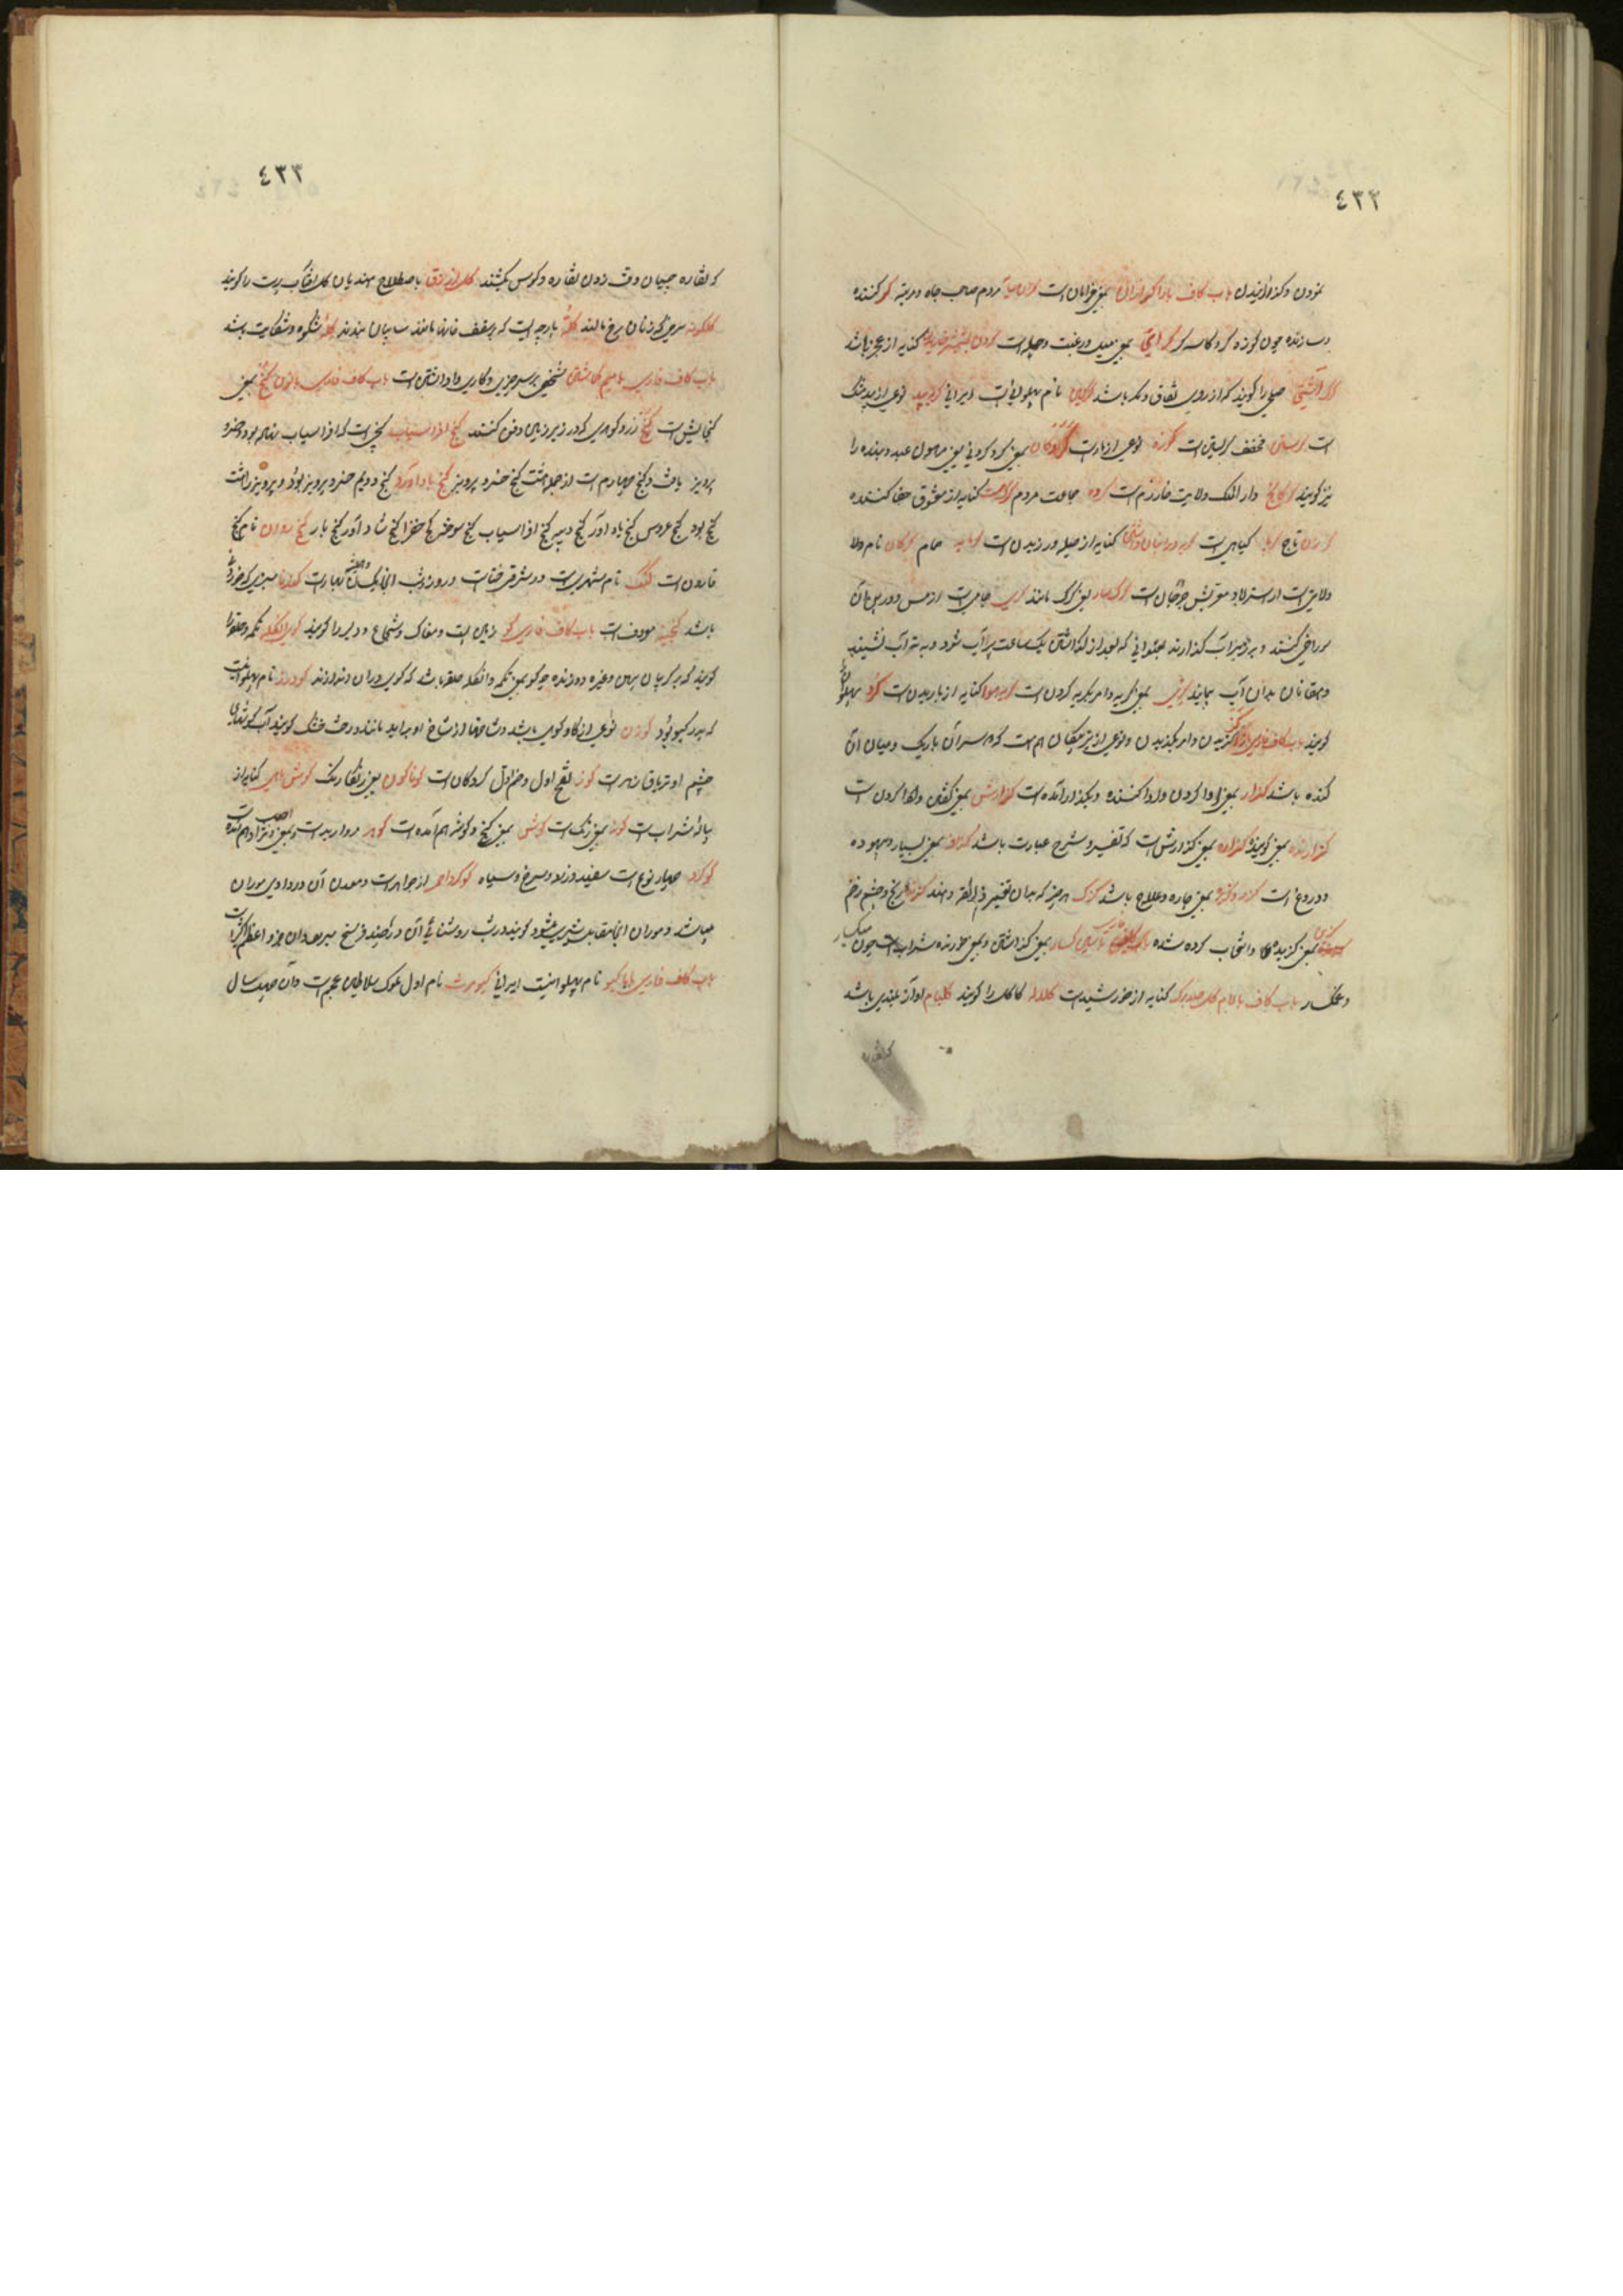 ٤٣٢
نمودن و گذرانیدن باب کاف با را گرازان بمعنی خرامان است مردم صاحب جاه و مرتبه گر کننده
و سازنده چون کوزه گر و کاسه گر گرای بمعنی میل و رغبت و حمله است کنایه از عجز باشد
گرگ آشتی صلحی را گویند که از روی نفاق و مکر باشد گرگین نام پهلوانی است ایرانی نوعی از بیدمشک
است مخفف گریستن است گرزه نوعی از مار است بمعنی گرو کرونی یعنی مرهون عبد و بنده را
نیز گویند گرگانج دار الملک ولایت خوارزم است گروه جماعت مردم کنایه از معشوق جفا کننده
گرزن تاج گیاهی است کنایه از حیله ورزیدن است گرمابه حمام گرگان نام ولا
ولایتی است از استرآباد معربش جرجان است گرگسار یعنی گرگ مانند جامی است از مس و در بن آن
سوراخی کنند و بر روی آب گذارند بعنوانی که بعد از گذاشتن یک ساعت پر آب شود و به ته آب نشیند
و دهقانان بدان آب پیمایند گری بمعنی گریه و امر بگریه کردن است گریه هوا کنایه از باریدن است گرد پهلوان را
گویند باب کاف فارسی با زا گزین گزیدن و امر بگزیدن و نوعی از تیر پیکان هم هست که هر دو سر آن باریک و میان آن
گنده باشد گزار بمعنی ادا کردن و ادا کننده و بگذار آمده است گزارش بمعنی گفتن و ادا کردن است
گزارنده بمعنی گوینده گزاره بمعنی گزارش است که تفسیر و شرح عبارت باشد گزاف بمعنی بسیار و بیهوده
و دروغ است گزیر بمعنی چاره و علاج باشد گزک هر چیز که بدان تغییر ذائقه دهند گزند رنج و چشم زخم
بمعنی گزیده و انتخاب کرده شده گسار بمعنی گذاشتن و بمعنی خورنده شراب است چون میگسار
و غمگسار باب کاف با لام گل صدبرگ کنایه از خورشید است گلاله کاکل را گویند گلبام آواز بلندی باشد
که نقاره
٤٣٣
که نقاره چیان وقت زدن نقاره و کوس کشند گل ازرق باصطلاح هندیان گل آفتاب پرست را گویند
گلگونه سرخی که زنان بر رخ مالند گله پارچه ایست که بر سقف خانها مانند سایبان بندند گله شکوه و شکایت باشد
باب کاف فارسی با میم گماشتن شخصی بر سر چیزی و کاری واداشتن است باب کاف فارسی با نون گنج بمعنی
گنجایش است گنج زر و گوهری که در زیر زمین دفن کنند گنج افراسیاب گنجی است که افراسیاب نهاده بود و خسرو
پرویز یافت و گنج چهارم است از جمله هشت گنج خسرو پرویز گنج باد آورد گنج دویم خسرو پرویز بود و پرویز را هشت
گنج بود گنج عروس گنج باد آور گنج دیبه گنج افراسیاب گنج سوخته گنج خضرا گنج شاد آور گنج بار گنج روان نام گنج
قارون است گنگ نام شهری است در مشرقی ختا است و روز و شب آنجا یکسان و همیشه بهار است گندنا سبزی که خورند
باشد گنجینه معروف است باب کاف فارسی گو زمین پست و مغاک و شجاع و دلیر را گویند گوی انگله تکمه و حلقه را
گویند که بر گریبان پیراهن و غیره دوزند چه گو بمعنی تکمه و انگله حلقه باشد که گوی در آن اندازند گودرز نام پهلوانیست
که پدر گیو بود گوزن نوعی از گاو کوهی باشد و شاخها از شاخ او برآید مانند درخت خشک گویند آب گوشهای
چشم او تریاق زهر است گوز بفتح اول و ضم اول گردکان است گوناگون یعنی رنگارنگ گوش ماهی کنایه از
پیاله شراب است گون بمعنی رنگ است گوش بمعنی کنج و گوشه هم آمده است گوهر مروارید است و بمعنی اصل و نژاد هم آمده است
گوگرد چهار نوع است سفید و زرد و سرخ و سیاه گوگرد احمر از جواهر است و معدن آن در وادی موران
میباشد و موران آنجا مقابل شیری میشود گویند در شب روشنائی آن در چند فرسخ میرود و آن جزو اعظم اکسیر است
باب کاف فارسی با یا گیو نام پهلوانیست ایرانی کیومرث نام اول ملوک سلاطین عجم است و آن صد سال